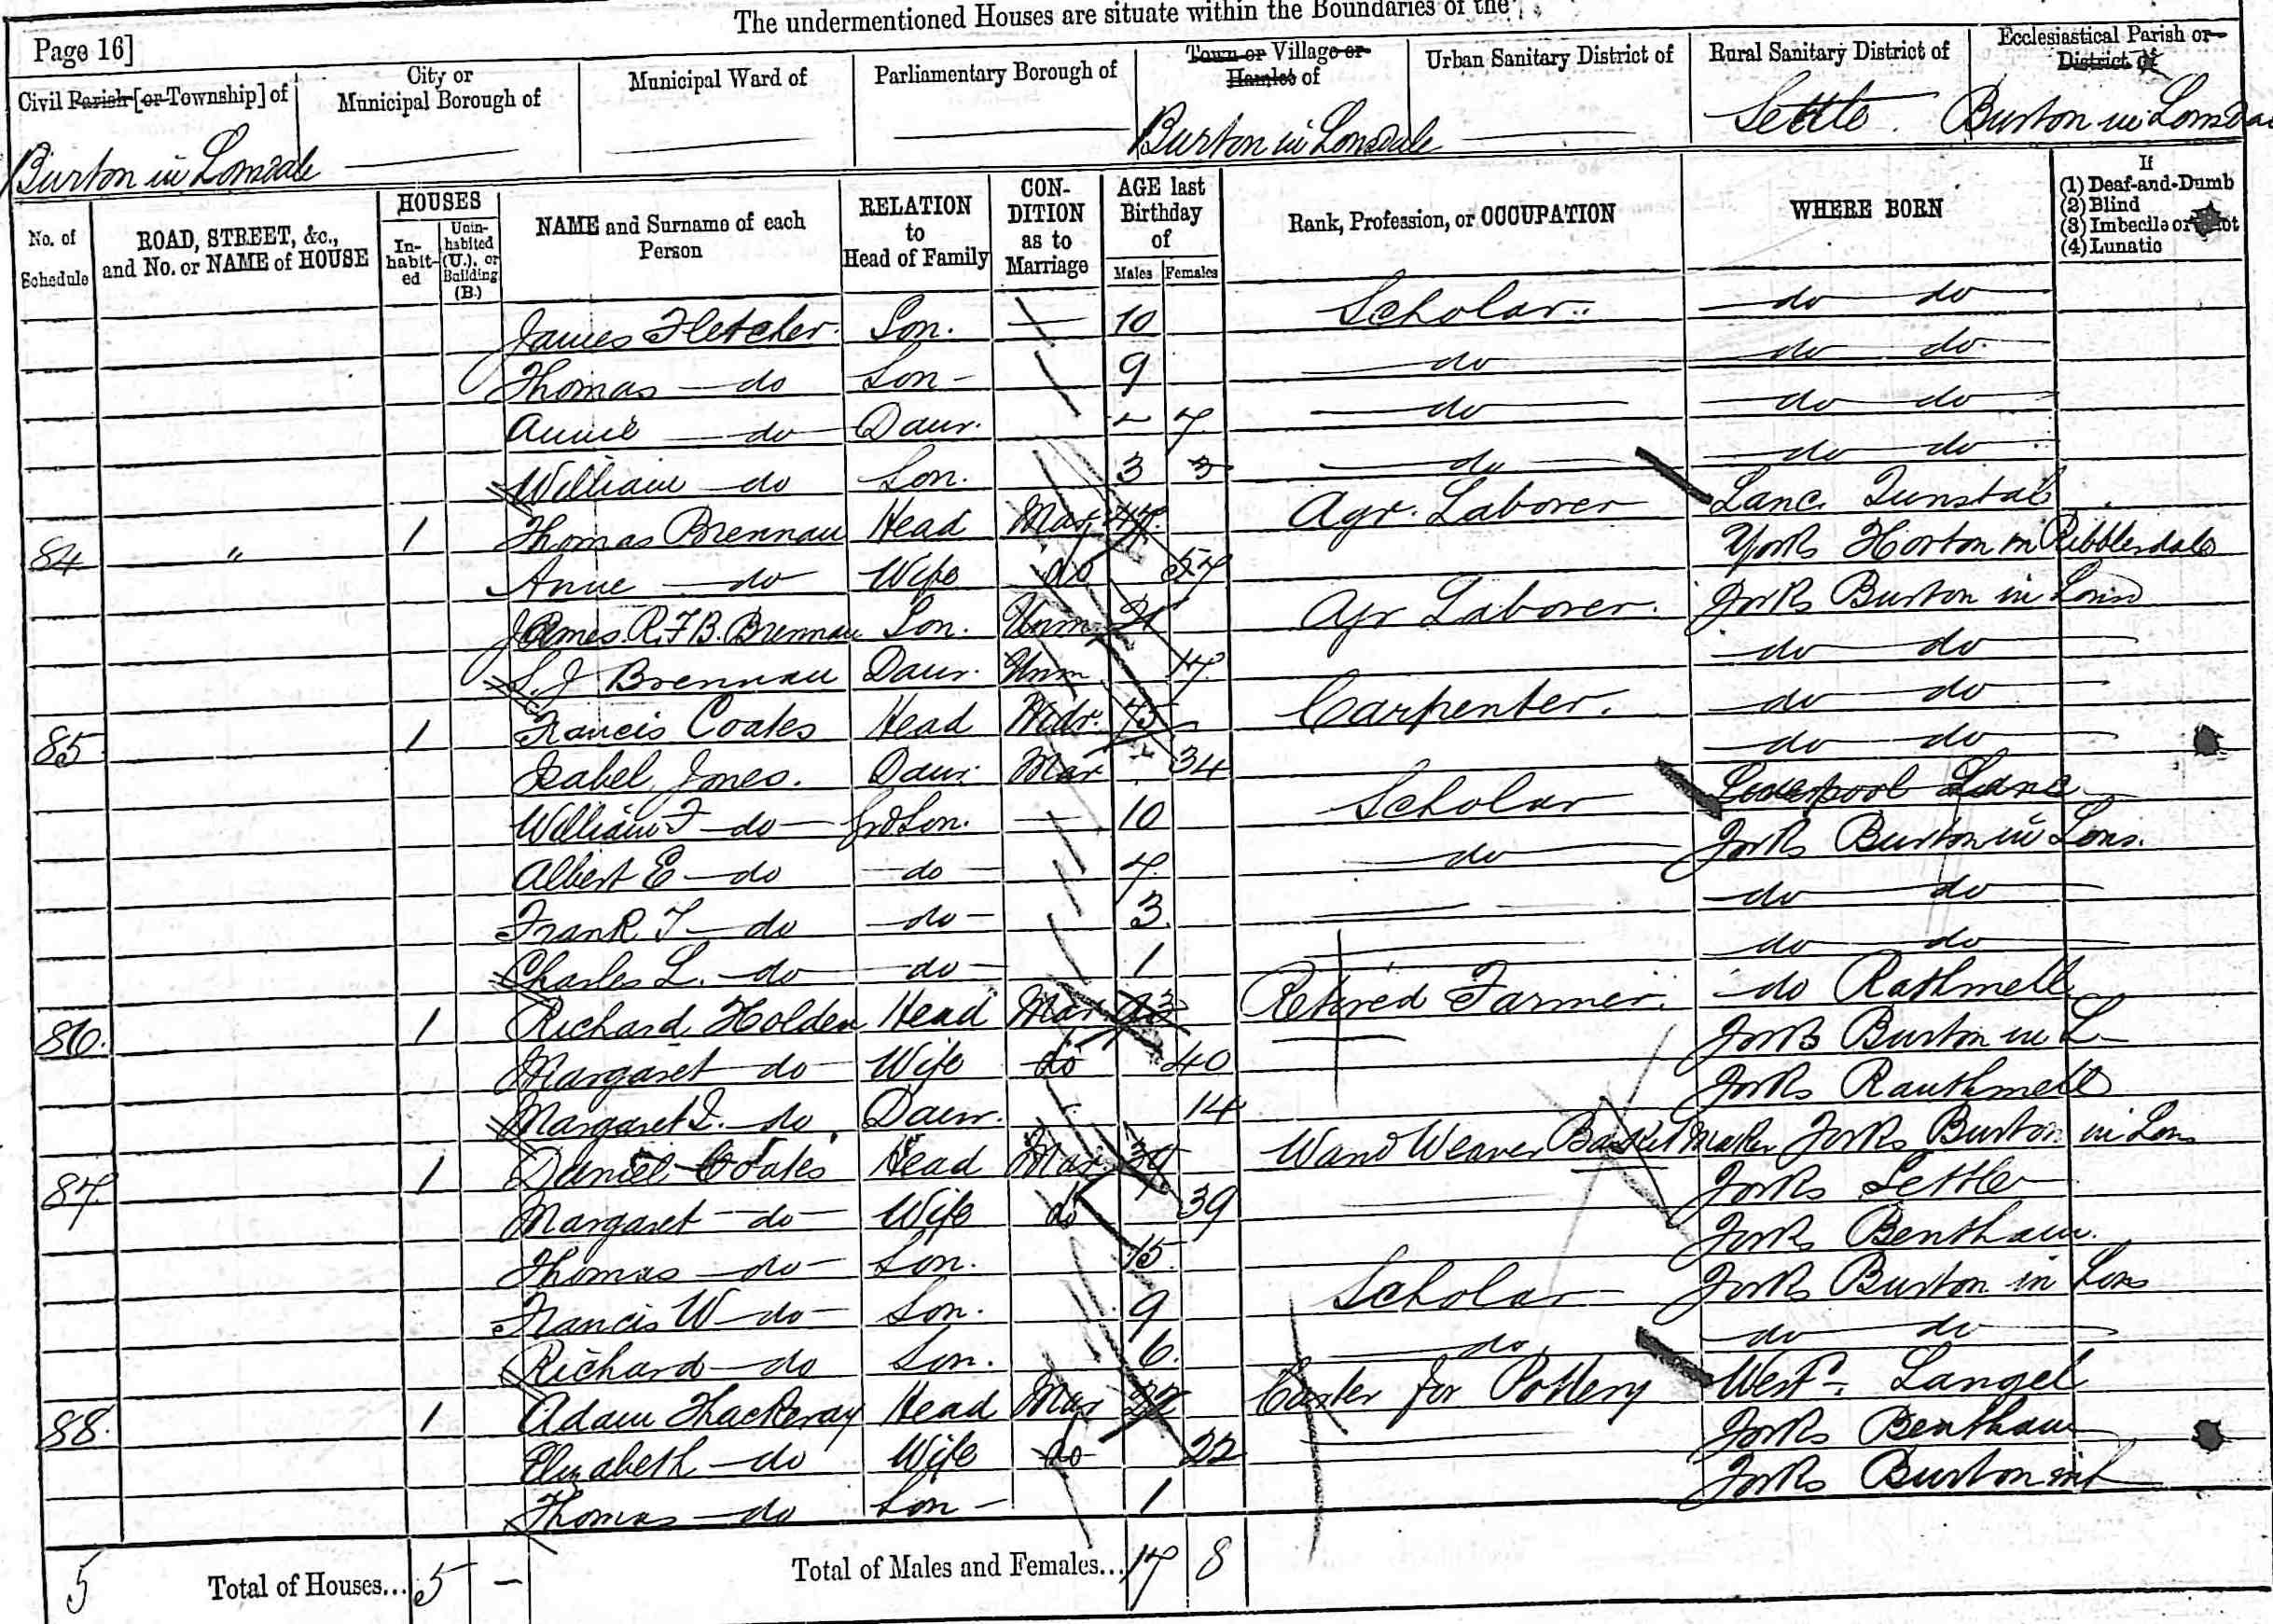 The undermentioned Houses are situate within the Boundaries of the
Page 16]
Civil Parish [or Township] of
City or Municipal Borough of
Municipal Ward of
Parliamentary Borough of
Town or Village or Hamlet of
Urban Sanitary District of
Rural Sanitary District of
Ecclesiastical Parish or District of
Burton in Lonsdale
Burton in Lonsdale
Settle
Burton in Lonsda
No. of Schedule
ROAD, STREET, &c., and No. or NAME of HOUSE
HOUSES
In-habit-ed
Unin-habited (U.), or Building (B.)
NAME and Surname of each Person
RELATION to Head of Family
CON-DITION as to Marriage
AGE last Birthday of
Males Females
Rank, Profession, or OCCUPATION
WHERE BORN
If
(1) Deaf-and-Dumb
(2) Blind
(3) Imbecile or
(4) Lunatic
James Fletcher Son. 10 Scholar do do
Thomas do Son 9 do do do
Annie do Daur. 7 do do do
William do Son. 3 do do do
84 " 1 Thomas Brennan Head Mar Agr. Laborer Lanc. Tunstal
Anne do Wife do 57 Yorks Horton in Ribblesdale
James R. F B. Brennan Son. Unm 21 Agr Laborer. Yorks Burton in Lonsd
S. J Brennan Daur. Unm 17 do do
85 1 Francis Coates Head Widr. 75 Carpenter. do do
Isabel Jones. Daur. Mar 34 do do
William F do GrdSon. 10 Scholar Liverpool Lanc
Albert E do do 7 do Yorks Burton in Lons.
Frank T do do 3 do do
Charles L. do do 1 do do
86. 1 Richard Holden Head Mar Retired Farmer. do Rathmell
Margaret do Wife do 40 Yorks Burton in L
Margaret I. do Daur. 14 Yorks Rauthmell
87 1 Daniel Coates Head Mar 39 Wand Weaver Basket Maker Yorks Burton in Lons
Margaret do Wife do 39 Yorks Settle
Thomas do Son. 15 Yorks Bentham.
Francis W do Son. 9 Scholar Yorks Burton in Lons
Richard do Son. 6 do do do
88. 1 Adam Thackeray Head Mar Carter for Pottery Westd. Langel
Elizabeth do Wife do 22 Yorks Bentham
Thomas do Son 1 Yorks Burton in L
5 Total of Houses... 5 – Total of Males and Females... 17 8